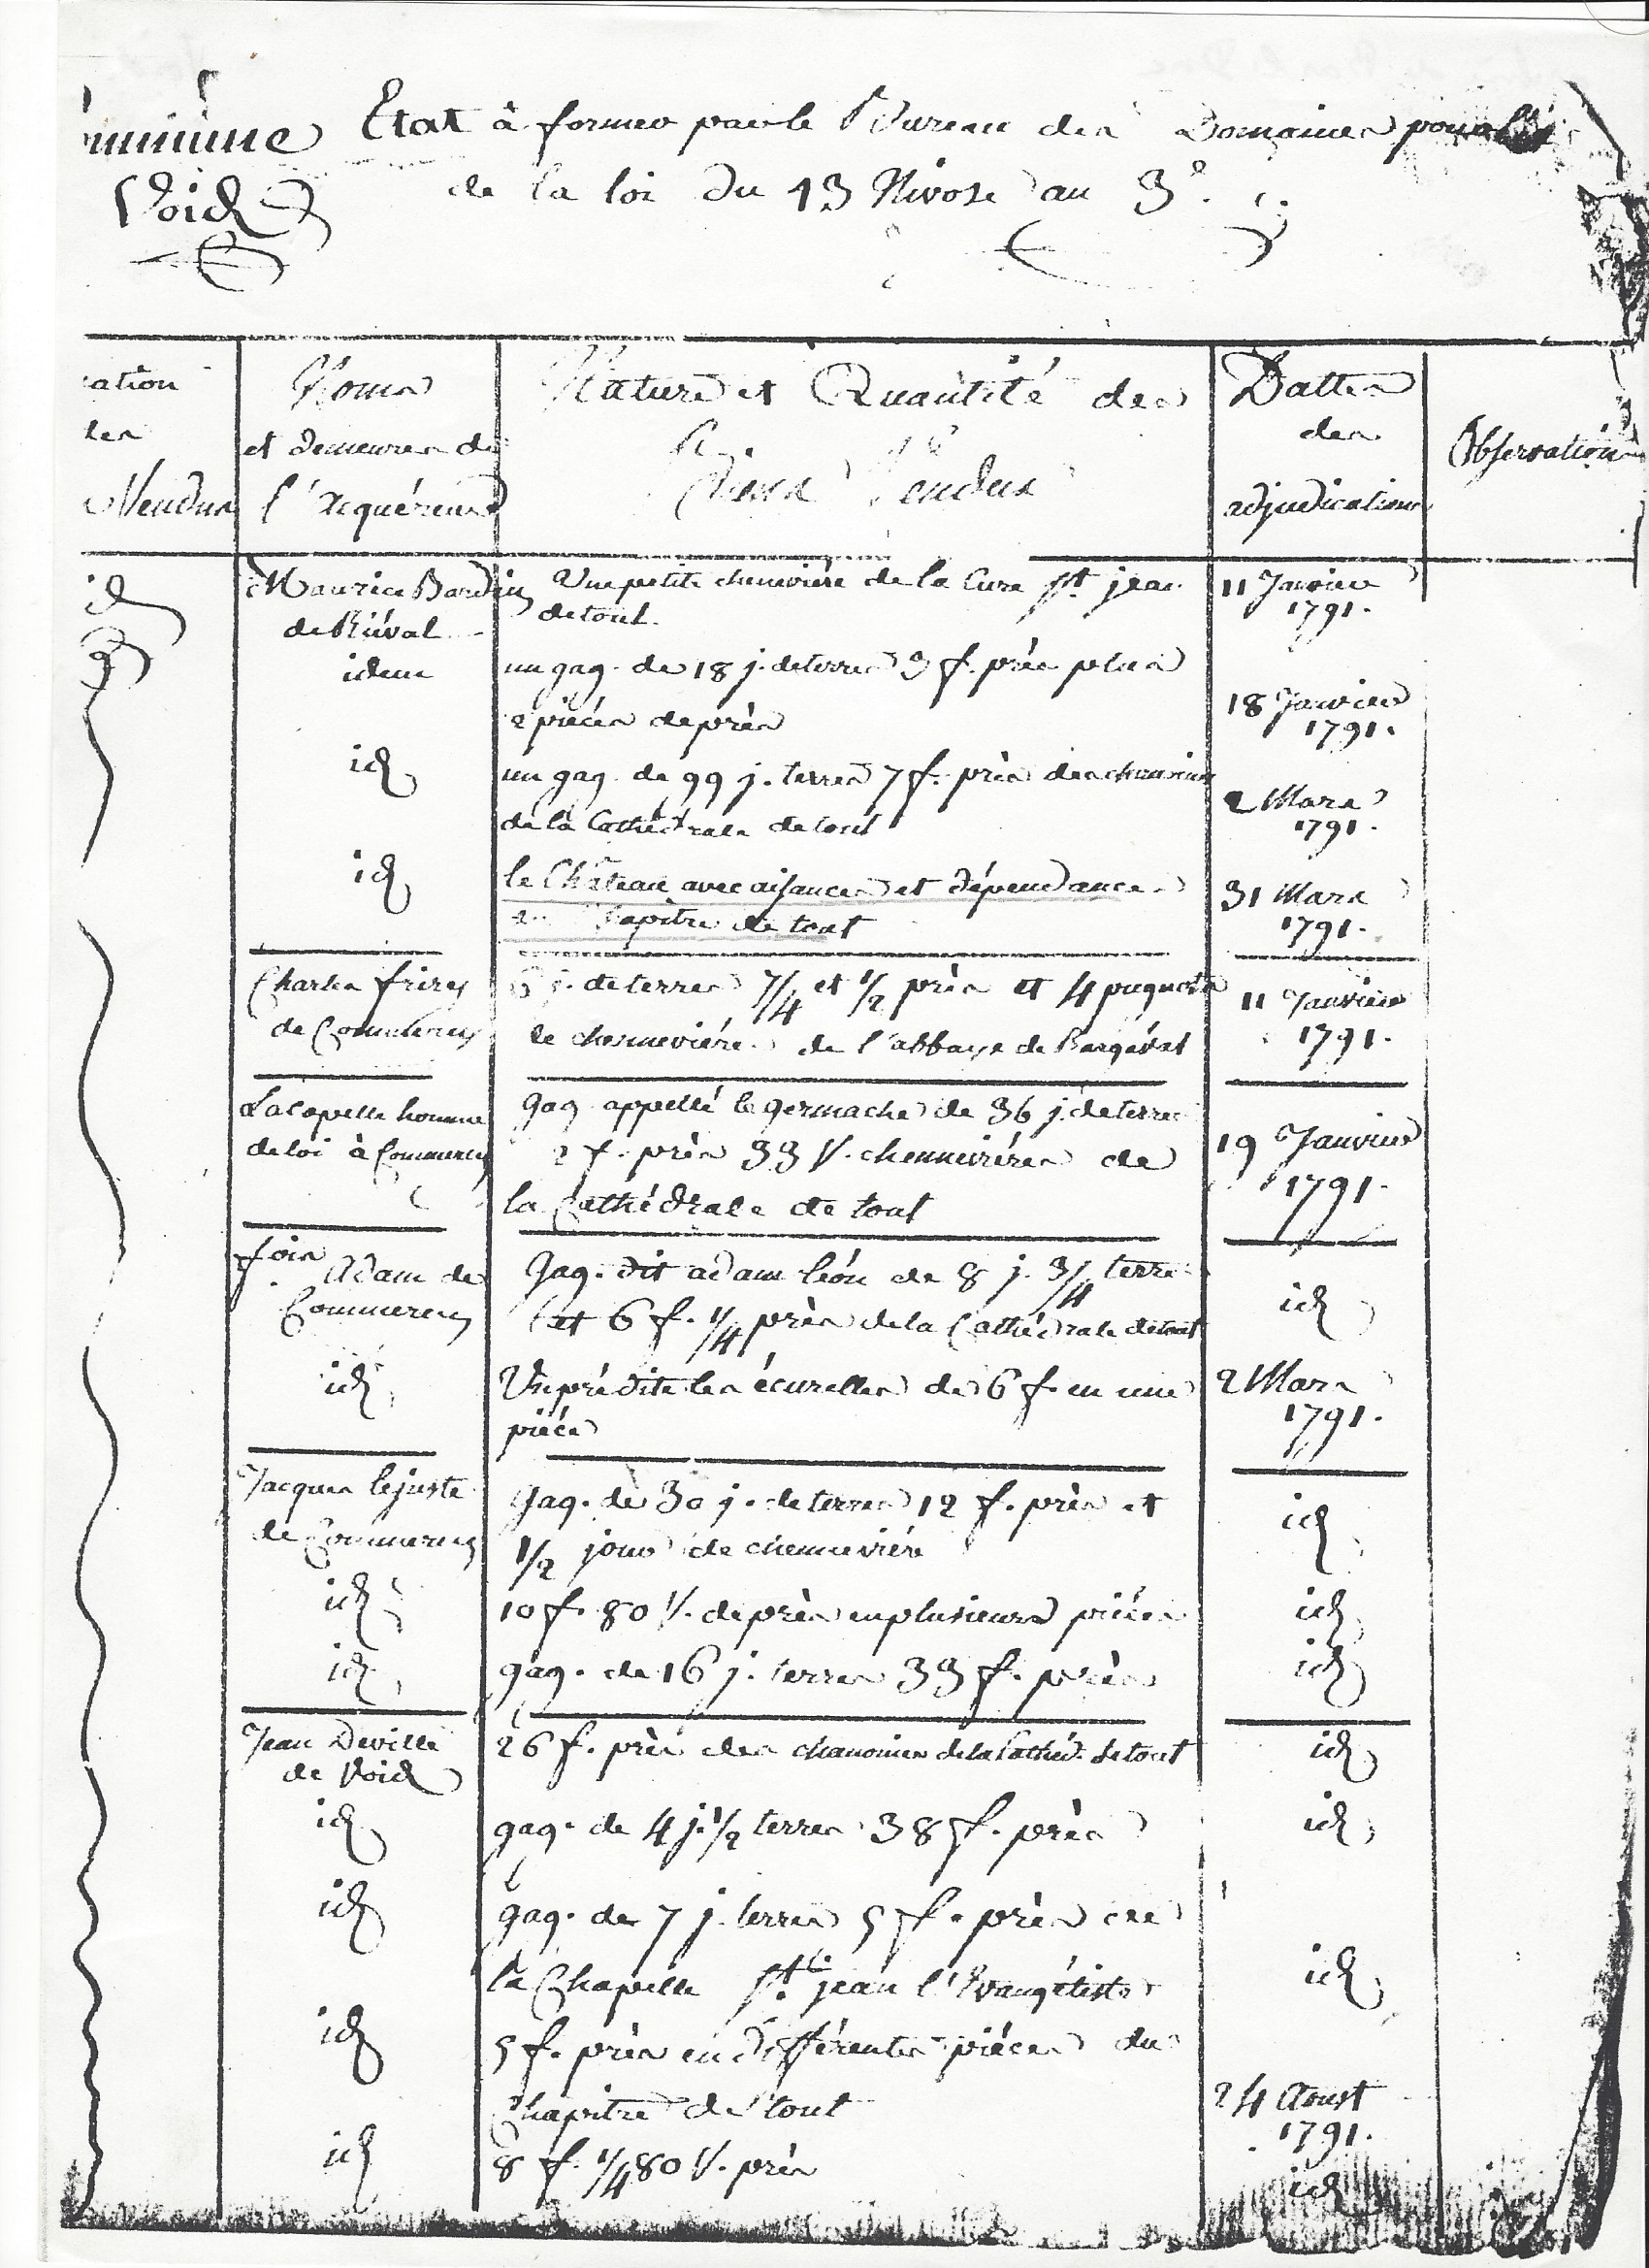 mmune Etat à former par le Bureau des Domaines pour
Void de la loi du 13 Nivose an 3e.
ation Noms Nature et Quantité des Dattes
des et demeures de Biens Vendus des Observations
Vendus l'acquéreur adjudications
id Maurice Bardin Une petite cheneviére de la Cure St. jean 11 Janvier
de Riéval de toul. 1791.
idem un gag. de 18 j. de terres 3 f. près plus
2 piéces de près 18 Janvier
1791.
id un gag. de 99 j. terres 7 f. près des
de la Cathédrale de toul 2 Mars
1791.
id le Château avec aisances et dépendances 31 Mars
Chapitre de toul 1791.
Charles frères j. de terres 7/4 et 1/2 près et 4 pugnets 11 Janvier
de Commercy de chenneviéres de l'abbaye de 1791.
Lacapelle homme gag. appellé le germache de 36 j. de terres
de loi à Commercy 2 f. près 33 V. chennevières de 19 Janvier
la Cathédrale de toul 1791.
fois Adam de Gag. dit adam léon de 8 j. 3/4 terre
Commercy et 6 f. 1/4 près de la Cathédrale de toul id
id Un pré dit les écurelles de 6 f. en une 2 Mars
piéce 1791.
Jacques lejuste gag. de 30 j. de terres 12 f. près et id
de Commercy 1/2 jour de chennevière
id 10 f. 80 V. de près en plusieurs piéces id
id gag. de 16 j. terres 33 f. près id
Jean Deville 26 f. près des chanoines de la Cathéd. de toul id
de Void
id gag. de 4 j. 1/2 terres 38 f. près id
id gag. de 7 j. terres 5 f. près de
la Chapelle St. jean l'Evangéliste id
id 5 f. près en différentes piéces du
Chapitre de toul 24 Aoust
1791.
id 8 f. 1/4 80 V. près id